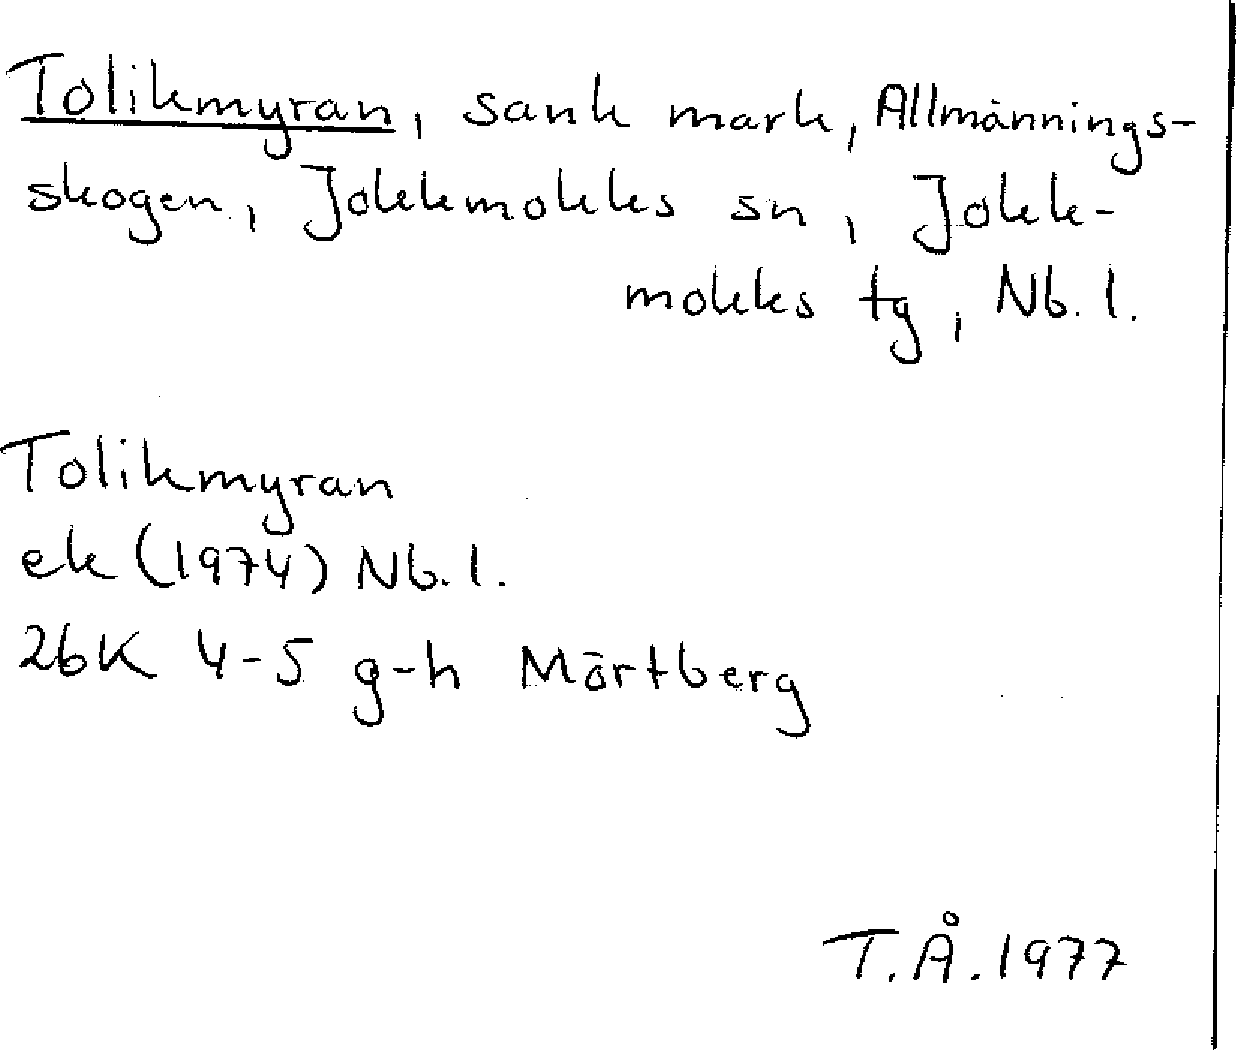 Tolikmyran, sank mark, Allmännings-
skogen, Jokkmokks sn, Jokk-
mokks tg, Nb. l.
Tolikmyran
ek (1974) Nb. l.
26K 4-5 g-h Mörtberg
T.Å. 1977